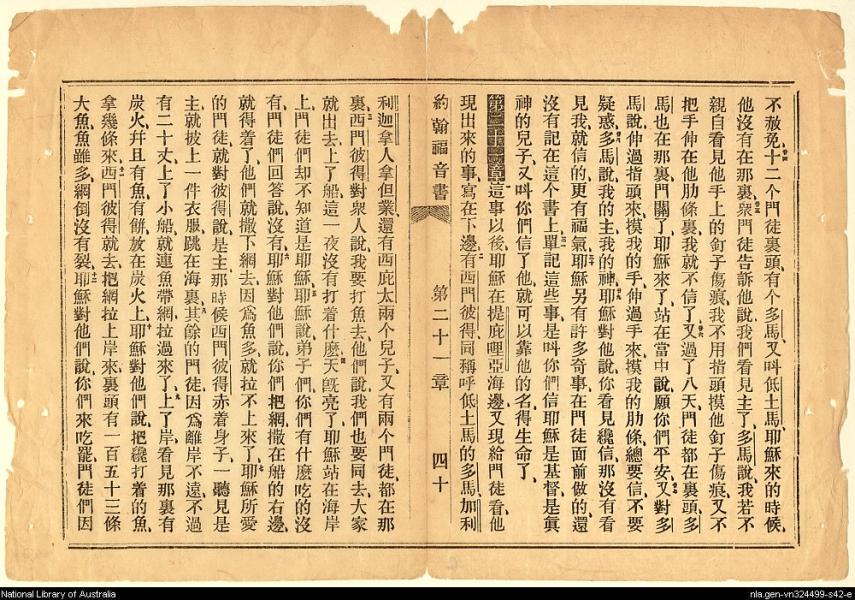 不赦免、十二个門徒裏頭、有个多馬、又叫低土馬、耶穌來的時候、
他沒有在那裏、衆門徒告訴他說、我們看見主了、多馬說、我若不
親自看見他手上的釘子傷痕、我不用指頭摸他釘子傷痕、又不
把手伸在他肋條裏、我就不信了、又過了八天、門徒都在裏頭、多
馬也在那裏、門關了、耶穌來了、站在當中、說、願你們平安、又對多
馬說、伸過指頭來、摸我的手、伸過手來、摸我的肋條、總要信、不要
疑惑、多馬說、我的主、我的神、耶穌對他說、你看見纔信、那沒有看
見我就信的、更有福氣、耶穌另有許多奇事、在門徒面前做的、還
沒有記在這个書上、單記這些事、是叫你們信耶穌是基督、是眞
神的兒子、又叫你們信了他、就可以靠他的名得生命了、
第二十一章 這事以後、耶穌在提庇哩亞海邊、又現給門徒看、他
現出來的事、寫在下邊、有西門彼得、同稱呼低土馬的多馬、加利
約翰福音書 第二十一章 四十
利迦拿人拿但業、還有西庇太兩个兒子、又有兩个門徒、都在那
裏、西門彼得對衆人說、我要打魚去、他們說、我們也要同去、大家
就出去、上了船、這一夜沒有打着什麽、天旣亮了、耶穌站在海岸
上、門徒們却不知道是耶穌、耶穌說、弟子們、你們有什麽吃的沒
有、門徒們回答說、沒有、耶穌對他們說、你們把網撒在船的右邊、
就得着了、他們就撒下網去、因爲魚多、就拉不上來了、耶穌所愛
的門徒、就對彼得說、是主、那時候西門彼得赤着身子、一聽見是
主、就披上一件衣服、跳在海裏、其餘的門徒、因爲離岸不遠、不過
有二十丈、上了小船、就連魚帶網拉過來了、上了岸、看見那裏有
炭火、幷且有魚有餠放在炭火上、耶穌對他們說、把纔打着的魚、
拿幾條來、西門彼得就去把網拉上岸來、裏頭有一百五十三條
大魚、魚雖多、網倒沒有裂、耶穌對他們說、你們來吃罷、門徒們因
National Library of Australia
nla.gen-vn324499-s42-e